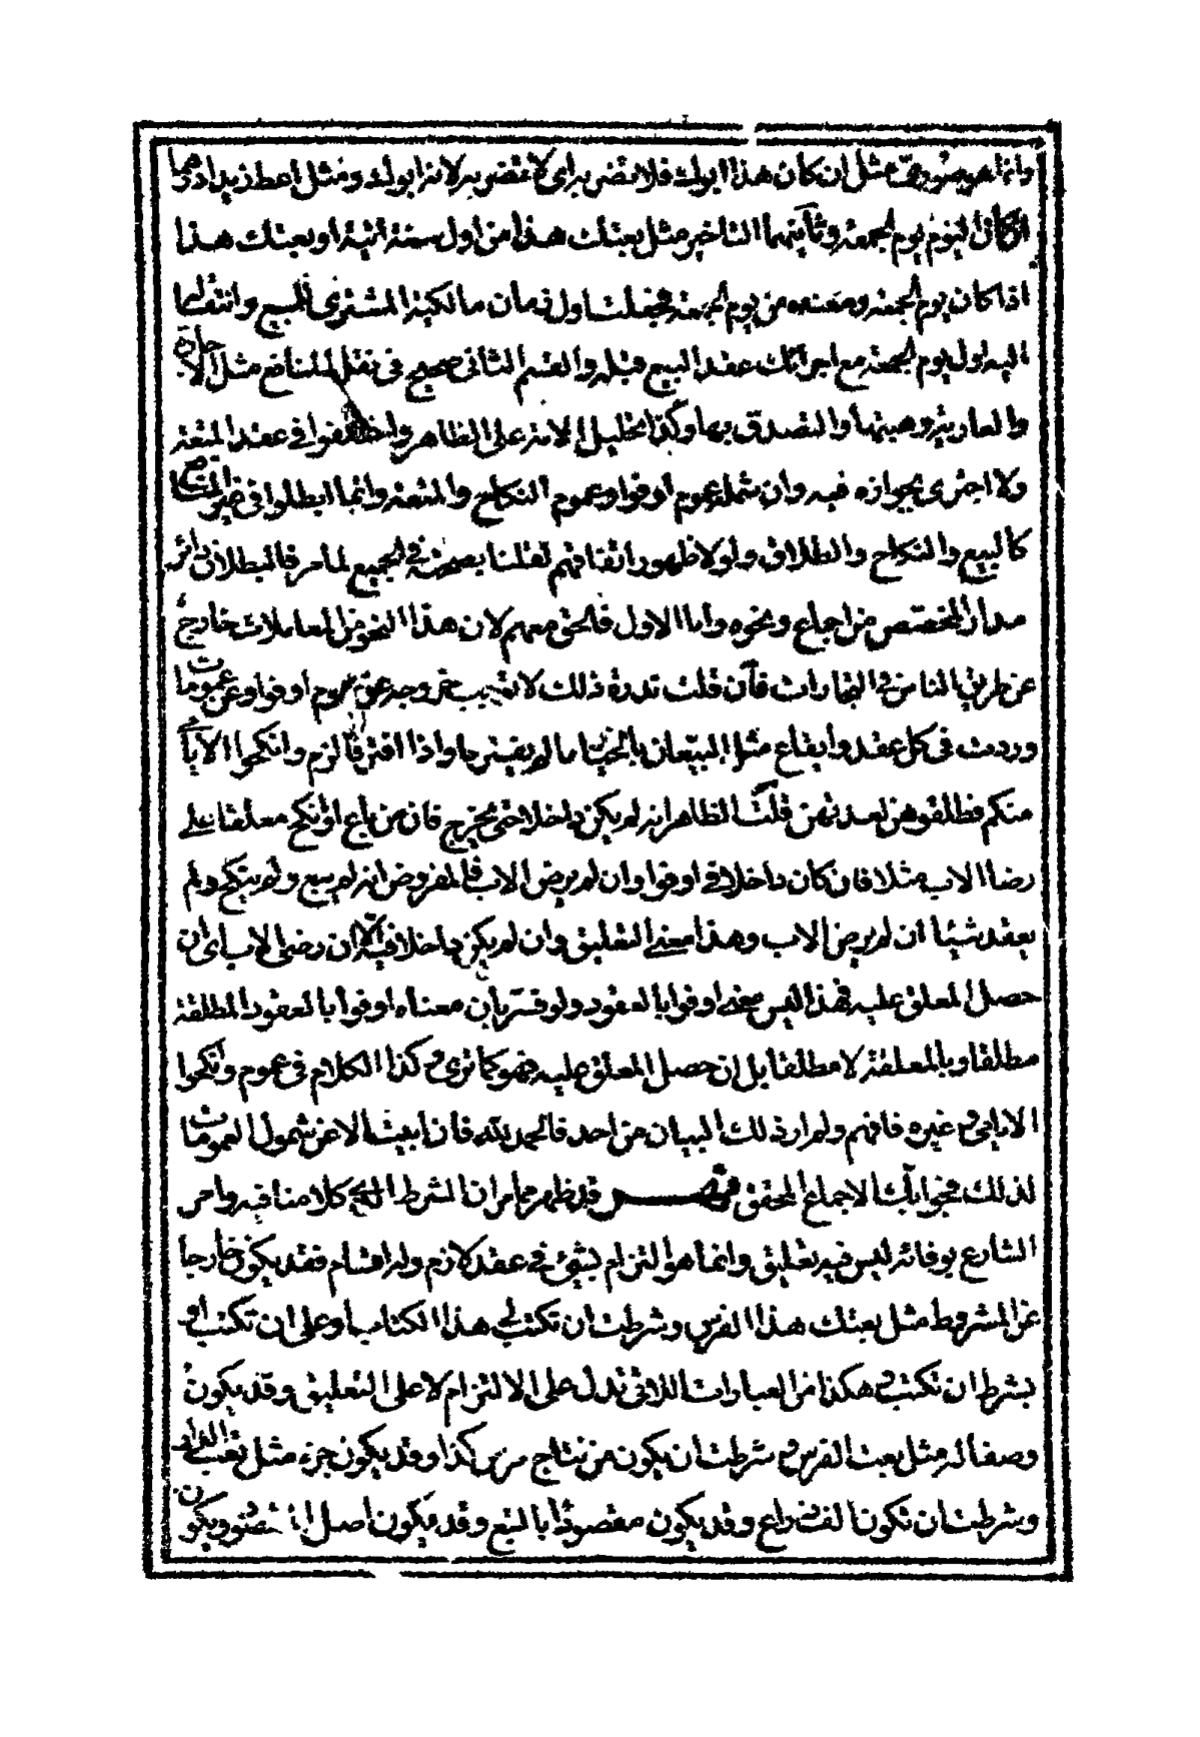 وانما هو صوري مثل ان كان هذا ابوك فلا تضربه اي لا تضربه لانه ابوك ومثل اعط زيدا درهما
ان كان اليوم يوم الجمعة وثانيهما التاخير مثل بعتك هذا من اول سنة اتية او بعتك هذا
اذا كان يوم الجمعة ومعناه من يوم الجمعة فجعلت اول زمان مالكية المشتري المبيع وانتقالها
اليه اول يوم الجمعة مع اجرائك عقد البيع قبله والقسم الثاني صحيح في نقل المنافع مثل الاجارة
والعارية وهبتها والتصدق بها وكذا تحليل الامة على الظاهر واختلفوا في عقد المتعة
ولا اجترى بجوازه فيه وان شمله عموم اوفوا وعموم النكاح والمتعة وانما ابطلوا في غير المنافع
كالبيع والنكاح والطلاق ولولا ظهور اتفاقهم لقلنا بصحته في الجميع لما مر فالبطلان دائر
مدار المخصص من اجماع ونحوه واما الاول فالحق معهم لان هذا النحو من المعاملات خارج
عن طريق الناس في التجارات فان قلت ندرة ذلك لا توجب خروجه عن عموم اوفوا وعن عمومات ما
وردت في كل عقد وايقاع مثل البيعان بالخيار ما لم يفترقا واذا افترقا لزم وانكحوا الايامى
منكم فطلقوهن لعدتهن قلت الظاهر انه لم يكن داخلا حتى يخرج فان من باع او انكح معلقا على
رضا الاب مثلا فان كان داخلا في اوفوا وان لم يرض الاب فالمفروض انه لم يبع ولم ينكح ولم
يعقد شيئا ان لم يرض الاب وهذا معنى التعليق وان لم يكن داخلا فيه الا ان رضى الاب اى ان
حصل المعلق عليه فهذا ليس معنى اوفوا بالعقود ولو فسر بان معناه اوفوا بالعقود المطلقة
مطلقا وبالمعلقة لا مطلقا بل ان حصل المعلق عليه فهو كما ترى وكذا الكلام في عموم وانكحوا
الايامى وغيره فافهم ولم ار ذلك البيان من احد فالحمد لله فان ابيت الا عن شمول العمومات
لذلك فجوابك الاجماع المحقق قد ظهر مما مر ان الشرط الذي كلامنا فيه وامر
الشارع بوفائه ليس فيه تعليق وانما هو التزام بشئ في عقد لازم وله اقسام فقد يكون خارجا
عن المشروط مثل بعتك هذا الفرس وشرطت ان تكتب لي هذا الكتاب او على ان تكتب او
بشرط ان تكتب وهكذا من العبارات اللاتي تدل على الالتزام لا على التعليق وقد يكون
وصفا له مثل بعت الفرس وشرطت ان يكون من نتاج فرس كذا وقد يكون جزء مثل بعت
وشرطت ان تكون الف ذراع وقد يكون مقصودا بالتبع وقد يكون اصل المقصود ويكون